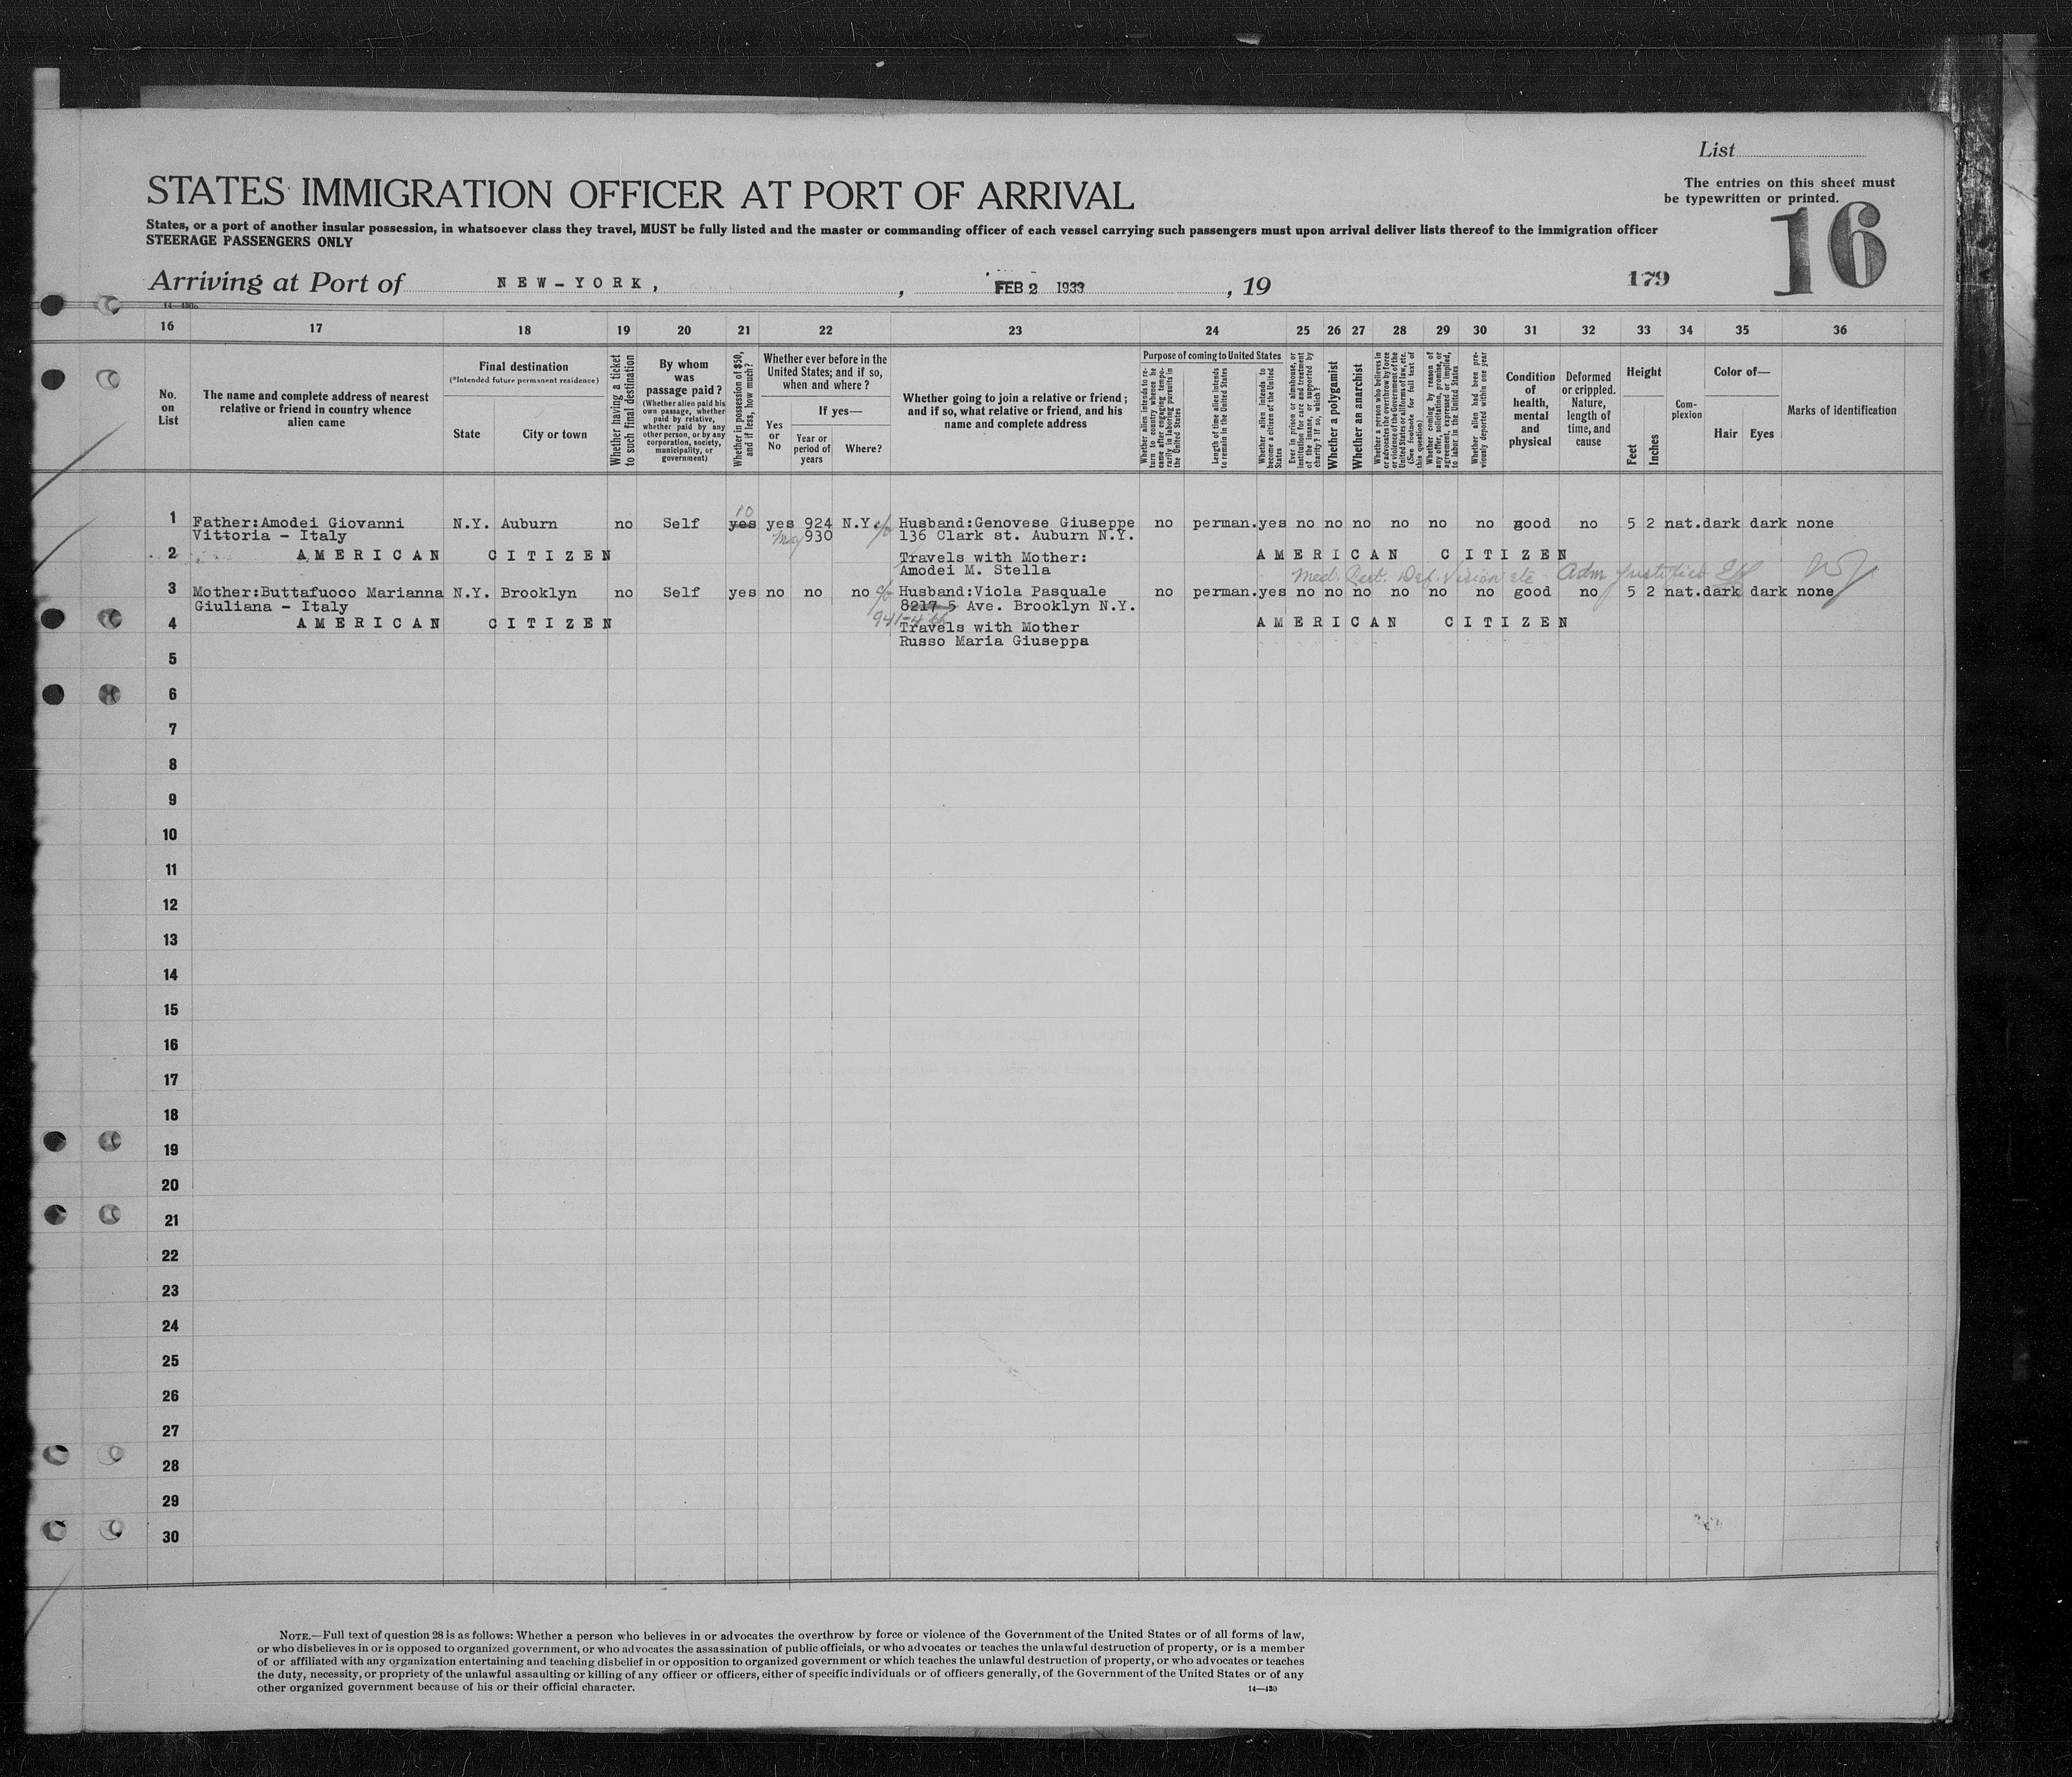 List
The entries on this sheet must
be typewritten or printed.
16
STATES IMMIGRATION OFFICER AT PORT OF ARRIVAL
States, or a port of another insular possession, in whatsoever class they travel, MUST be fully listed and the master or commanding officer of each vessel carrying such passengers must upon arrival deliver lists thereof to the immigration officer
STEERAGE PASSENGERS ONLY
Arriving at Port of NEW-YORK, , FEB 2 1933 , 19
179
16 17 18 19 20 21 22 23 24 25 26 27 28 29 30 31 32 33 34 35 36
No. on List
The name and complete address of nearest
relative or friend in country whence
alien came
Final destination
(*Intended future permanent residence)
State
City or town
Whether having a ticket
to such final destination
By whom
was
passage paid?
(Whether alien paid his
own passage, whether
paid by relative,
whether paid by any
other person, or by any
corporation, society,
municipality, or
government)
Whether in possession of $50,
and if less, how much?
Whether ever before in the
United States; and if so,
when and where?
Yes
or
No
If yes—
Year or
period of
years
Where?
Whether going to join a relative or friend;
and if so, what relative or friend, and his
name and complete address
Purpose of coming to United States
Whether alien intends to re-
turn to country whence he
came after engaging tempo-
rarily in laboring pursuits in
the United States
Length of time alien intends
to remain in the United States
Whether alien intends to
become a citizen of the United
States
Ever in prison or almshouse, or
institution for care and treatment
of the insane, or supported by
charity? If so, which?
Whether a polygamist
Whether an anarchist
Whether a person who believes in
or advocates the overthrow by force
or violence of the Government of the
United States or all forms of law, etc.
(See footnote for full text of
this question)
Whether coming by reason of
any offer, solicitation, promise, or
agreement, expressed or implied,
to labor in the United States
Whether alien had been pre-
viously deported within one year
Condition
of
health,
mental
and
physical
Deformed
or crippled.
Nature,
length of
time, and
cause
Height
Feet
Inches
Com-
plexion
Color of—
Hair Eyes
Marks of identification
10
1 Father:Amodei Giovanni N.Y. Auburn no Self yes yes 924 N.Y. Husband:Genovese Giuseppe no perman. yes no no no no no no good no 5 2 nat. dark dark none
Vittoria - Italy May 930 136 Clark st. Auburn N.Y.
2 AMERICAN CITIZEN Travels with Mother: AMERICAN CITIZEN
Amodei M. Stella
Med. Cert. Def. Vision etc Adm
3 Mother:Buttafuoco Marianna N.Y. Brooklyn no Self yes no no no Husband:Viola Pasquale no perman. yes no no no no no no good no 5 2 nat. dark dark none
Giuliana - Italy 8217 5 Ave. Brooklyn N.Y.
4 AMERICAN CITIZEN Travels with Mother AMERICAN CITIZEN
Russo Maria Giuseppa
5
6
7
8
9
10
11
12
13
14
15
16
17
18
19
20
21
22
23
24
25
26
27
28
29
30
NOTE.—Full text of question 28 is as follows: Whether a person who believes in or advocates the overthrow by force or violence of the Government of the United States or of all forms of law,
or who disbelieves in or is opposed to organized government, or who advocates the assassination of public officials, or who advocates or teaches the unlawful destruction of property, or is a member
of or affiliated with any organization entertaining and teaching disbelief in or opposition to organized government or which teaches the unlawful destruction of property, or who advocates or teaches
the duty, necessity, or propriety of the unlawful assaulting or killing of any officer or officers, either of specific individuals or of officers generally, of the Government of the United States or of any
other organized government because of his or their official character.
14—430